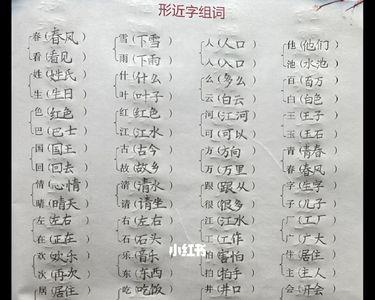 形近字组词
春(春风) 雪(下雪) 人(人口) 他(他们)
看(看见) 雨(下雨) 入(入口) 池(水池)
姓(姓氏) 什(什么) 么(多么) 百(百万)
生(生日) 叶(叶子) 云(白云) 白(白色)
色(红色) 红(红色) 河(江河) 王(王子)
巴(巴士) 江(江水) 可(可以) 玉(玉石)
国(国王) 古(古今) 方(方向) 青(青春)
回(回去) 故(故乡) 万(万里) 春(春风)
情(心情) 清(清水) 跟(跟从) 字(生字)
晴(晴天) 请(请坐) 很(很多) 子(儿子)
左(左右) 右(左右) 江(江水) 厂(工厂)
在(正在) 石(石头) 工(工作) 广(广大)
欢(欢乐) 乐(音乐) 怕(害怕) (居住)
次(再次) 东(东西) 拍(拍手) 主(主人)
居(居住) 吃(吃饭) 井(井口) 会(开会)
小红书